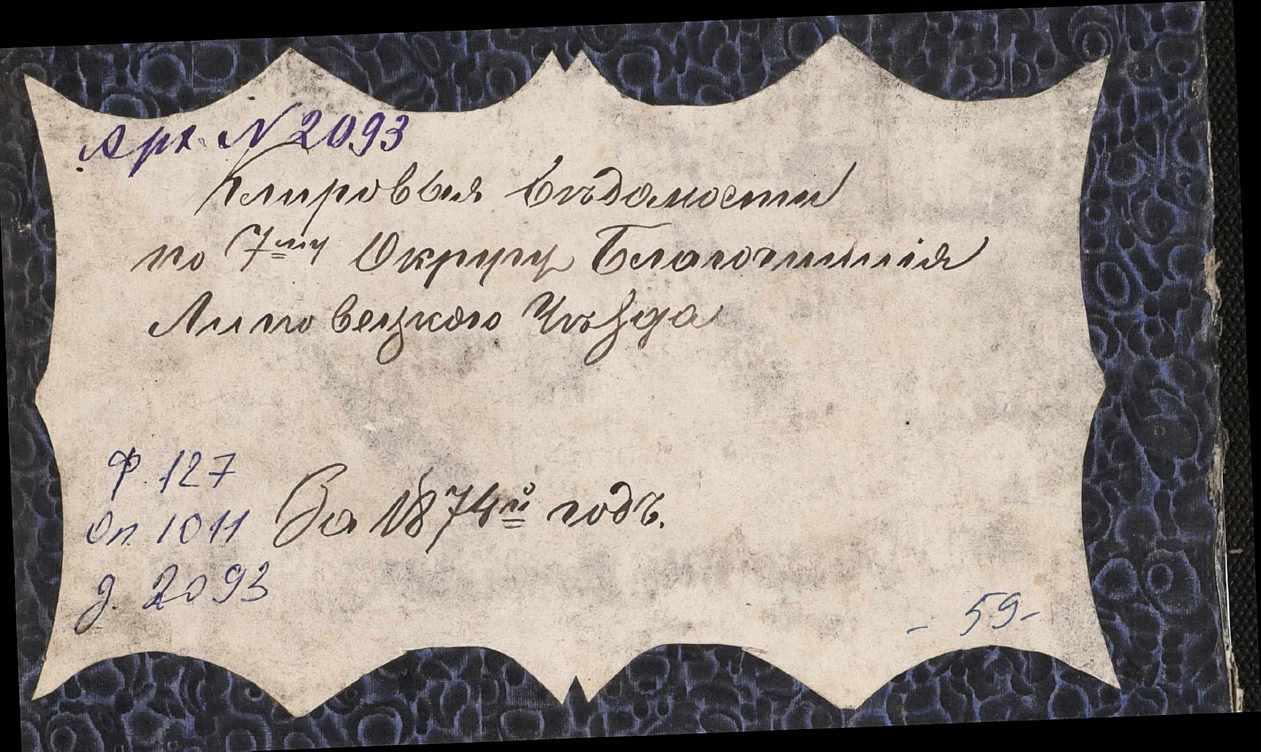 Арх. N 2093
Клировыя вѣдомости
по 7му Округу Благочинія
Липовецкаго Уѣзда
Ф. 127
За 1874й годъ.
Оп. 1011
д. 2093
- 59-